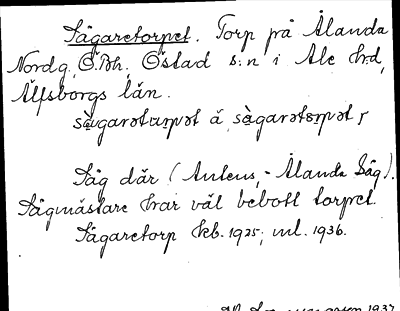 Sågaretorpet. Torp på Ålanda
Nordg, Ö.Bh, Östad s:n i Ale hrd,
Älfsborgs län.
sàgarətɷrpət å sàgarətɷrpət,
Såg där (Antens, - Ålanda Såg).
Sågmästare har väl bebott torpet.
Sågaretorp kb. 1925; ml. 1936.
1937